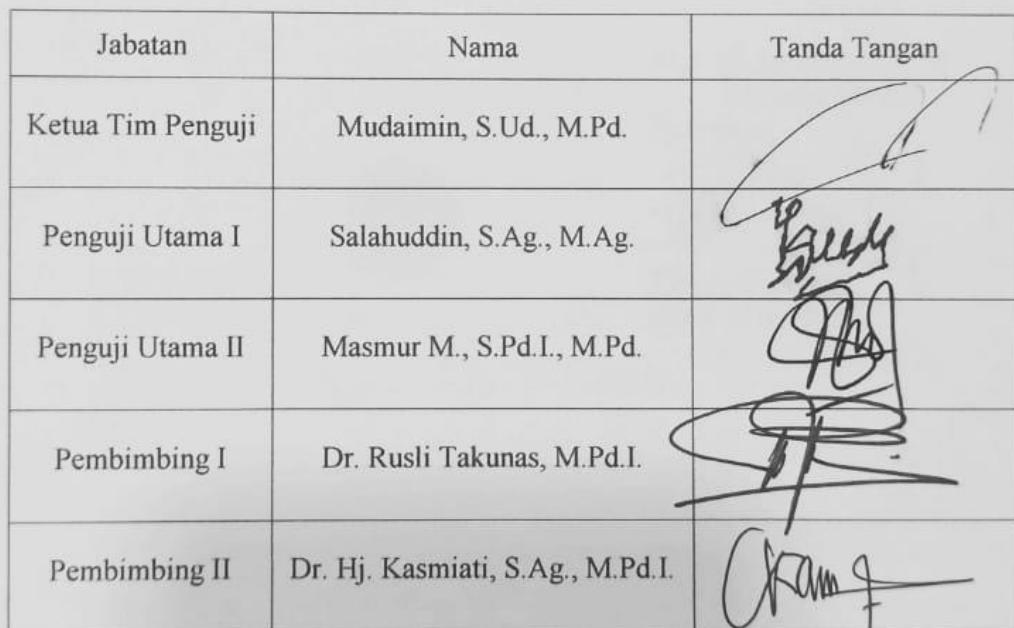 Jabatan Nama Tanda Tangan
Ketua Tim Penguji Mudaimin, S.Ud., M.Pd.
Penguji Utama I Salahuddin, S.Ag., M.Ag.
Penguji Utama II Masmur M., S.Pd.I., M.Pd.
Pembimbing I Dr. Rusli Takunas, M.Pd.I.
Pembimbing II Dr. Hj. Kasmiati, S.Ag., M.Pd.I.